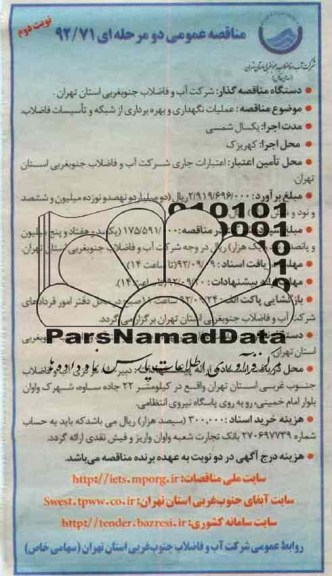 نوبت دوم
مناقصه عمومی دو مرحله ای ۹۲/۷۱
شرکت آب و فاضلاب جنوبغربی استان تهران
• دستگاه مناقصه گذار: شرکت آب و فاضلاب جنوبغربی استان تهران.
• موضوع مناقصه: عملیات نگهداری و بهره برداری از شبکه و تأسیسات فاضلاب.
• مدت اجرا: یکسال شمسی
• محل اجرا: کهریزک
• محل تأمین اعتبار: اعتبارات جاری شرکت آب و فاضلاب جنوبغربی استان تهران
• مبلغ برآورد: ۲/۹۱۹/۶۹۶/۰۰۰ ریال (دو میلیارد و نهصد و نوزده میلیون و ششصد و نود و
مبلغ در مناقصه: ۱۷۵/۵۹۱/۰۰۰ (یکصد و هفتاد و پنج میلیون و پانصد هزار) ریال در وجه شرکت آب و فاضلاب جنوبغربی استان تهران.
دریافت اسناد: ۹۲/۰۹/۰۹ (تا ساعت ۱۴)
پیشنهادات: (تا ساعت ۱۴)
• بازگشایی پاکت ۹۲/۰۹/۲۴ ساعت ۱۱ صبح در محل دفتر امور قراردادهای شرکت آب و فاضلاب جنوبغربی استان تهران برگزار می گردد.
010101
0001
10
ParsNamadData
استان تهران
جنوب غربی استان تهران واقع در کیلومتر ۲۲ جاده ساوه، شهرک واوان
بلوار امام خمینی، رو به روی پاسگاه نیروی انتظامی.
• هزینه خرید اسناد: ۳۰۰,۰۰۰ (سیصد هزار) ریال می باشد که باید به حساب
شماره ۲۷۰۶۹۷۷۳۹ بانک تجارت شعبه واوان واریز و فیش نقدی ارائه گردد.
• هزینه درج آگهی در دو نوبت به عهده برنده مناقصه می باشد.
سایت ملی مناقصات: http://iets.mporg.ir
سایت آبفای جنوب غربی استان تهران: Swest.tpww.co.ir
سایت سامانه کشوری: http://tender.bazresi.ir
روابط عمومی شرکت آب و فاضلاب جنوب غربی استان تهران (سهامی خاص)